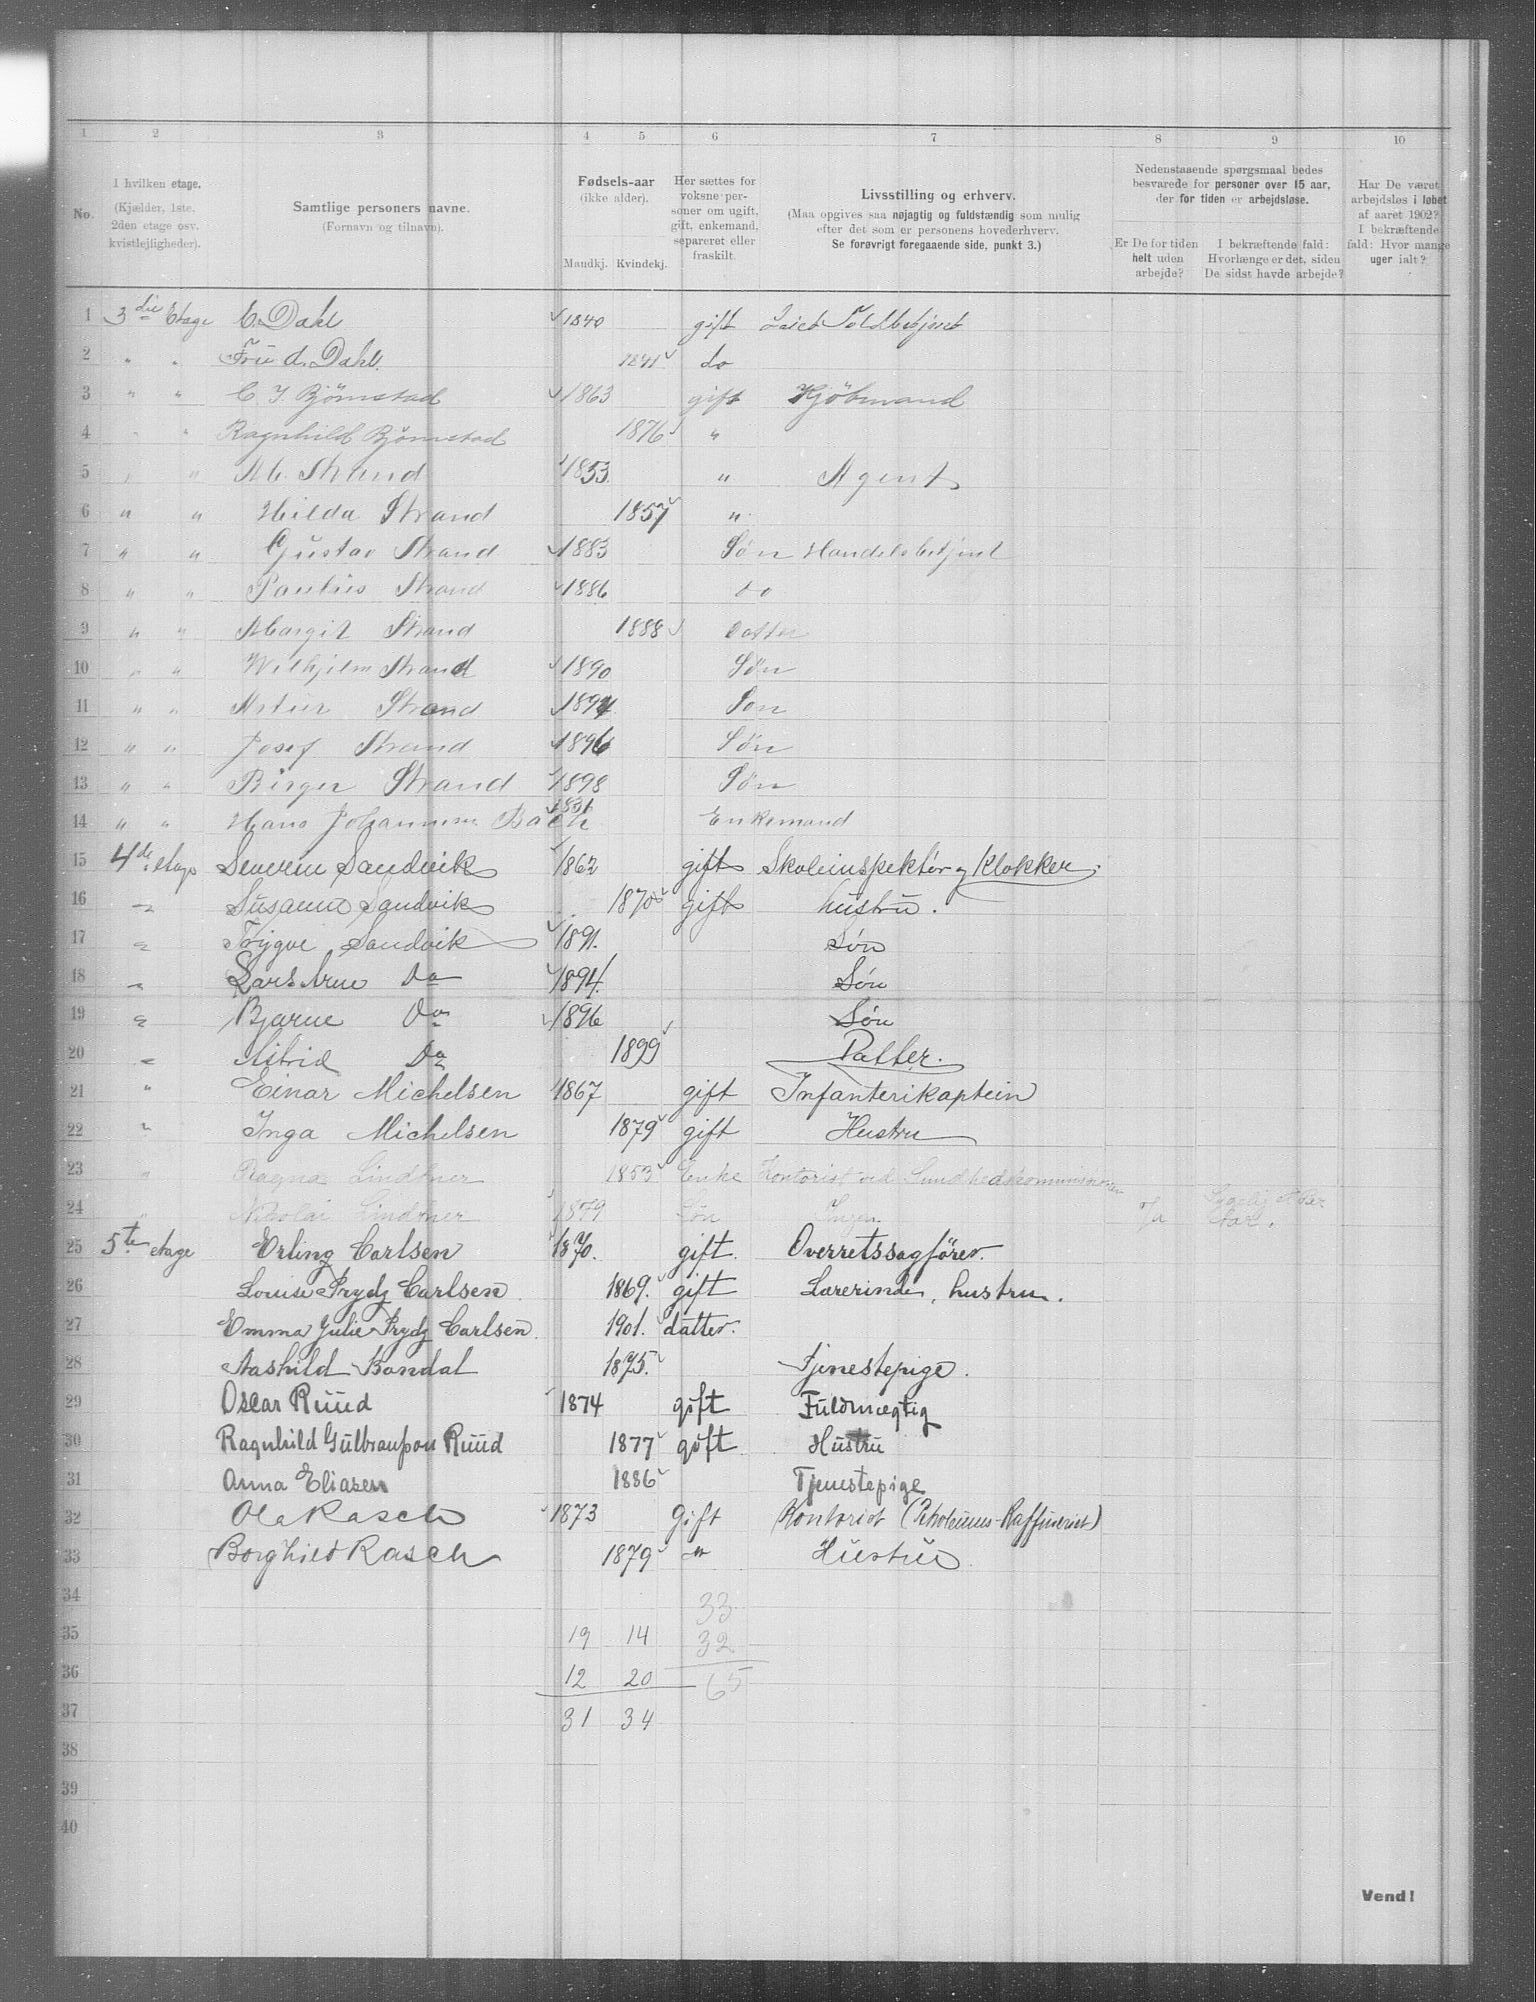 1 2 3 4 5 6 7 8 9 10
No.
I hvilken etage.
(Kjælder, 1ste.
2den etage osv.
kvistlejligheder).
Samtlige personers navne.
(Fornavn og tilnavn).
Fødsels-aar
(ikke alder).
Mandkj. Kvindekj.
Her sættes for
voksne per-
soner om ugift,
gift, enkemand,
separeret eller
fraskilt.
Livsstilling og erhverv.
(Maa opgives saa nøjagtig og fuldstændig som mulig
efter det som er personens hovederhverv.
Se forøvrigt foregaaende side, punkt 3.)
Nedenstaaende spørgsmaal bedes
besvarede for personer over 15 aar,
der for tiden er arbejdsløse.
Er De for tiden
helt uden
arbejde?
I bekræftende fald:
Hvorlænge er det, siden
De sidst havde arbejde?
Har De været
arbejdsløs i løbet
af aaret 1902?
I bekræftende
fald: Hvor mange
uger ialt?
1 3die Etage C. Dahl 1840 gift Toldbetjent
2 " " Fru d. Dahl. 1841 do
3 " " C J. Bjørnstad 1863 gift Kjöbmand
4 " " Ragnhild Bjørnstad 1876 "
5 " " M. Strand 1853 " Agent
6 " " Hilda Strand 1857 "
7 " " Gustav Strand 1883 Søn Handelsbetjent
8 " " Paulus Strand 1886 do
9 " " Margit Strand 1888 Datter
10 " " Wilhjelm Strand 1890 Søn
11 " " Artur Strand 1894 Søn
12 " " Josef Strand 1896 Søn
13 " " Birger Strand 1898 Søn
14 " " Hans Johannesen Bach 1831 Enkemand
15 4de etage Severin Sandvik 1862 gift Skoleinspektør og Klokker.
16 " Susanna Sandvik 1870 gift hustru.
17 " Trygve Sandvik 1891. Søn
18 " Lars Arne Do 1894. Søn
19 " Bjarne Do 1896 Søn
20 " Astrid Do 1899 Datter.
21 " Einar Michelsen 1867 gift Infanterikaptein
22 " Inga Michelsen 1879 gift Hustru
23 " Ragna Lindtner 1853 Enke Kontorist ved Sundhedskommissionen
24 " Nikolai Lindtner 1879 Søn Ingen
25 5te etage Erling Carlsen 1870. gift. Overretssagfører.
26 Louise Prydz Carlsen. 1869. gift Lærerinde, hustru.
27 Emma Julie Prydz Carlsen. 1901. datter.
28 Aashild Bondal 1875. Tjenestepige.
29 Oscar Ruud 1874 gift Fuldmægtig
30 Ragnhild Gulbransson Ruud 1877 gift Hustru
31 Anna Eliasen 1886 Tjenestepige
32 Ole Rasch 1873 Gift Kontorist (Petroleums-Raffineriet)
33 Borghild Rasch 1879 " Hustru
34 33
35 19 14 32
36 12 20 65
37 31 34
38
39
40
Vend!